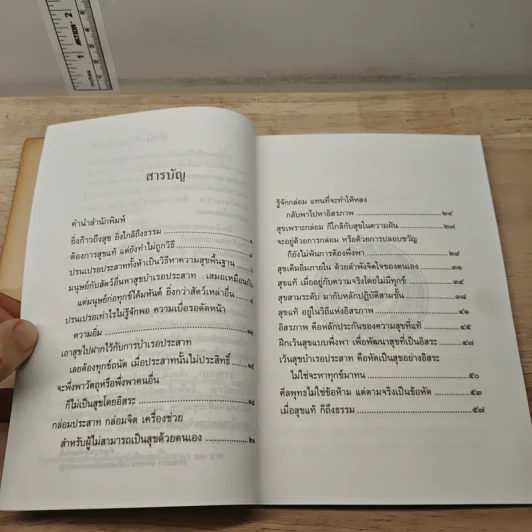 สารบัญ
คำนำสำนักพิมพ์
ยิ่งก้าวถึงสุข ยิ่งใกล้ถึงธรรม ๑
ต้องการสุขแท้ แต่ยังทำไม่ถูกวิธี ๒
ปรนเปรอประสาททั้งห้าเป็นวิธีหาความสุขพื้นฐาน
มนุษย์กับสัตว์อื่นหาสุขบำเรอประสาท เสมอเหมือนกัน
แต่มนุษย์ก่อทุกข์ได้มหันต์ ยิ่งกว่าสัตว์เหล่าอื่น
ปรนเปรอเท่าไรไม่รู้จักพอ ความเบื่อรอตัดหน้า
ความอิ่ม
เอาสุขไปฝากไว้กับการบำเรอประสาท
เลยต้องทุกข์ถนัด เมื่อประสาทนั้นไม่ประสิทธิ์ ๑๕
จะพึ่งพาวัตถุหรือพึ่งพาคนอื่น
ก็ไม่เป็นสุขโดยอิสระ ๑๘
กล่อมประสาท กล่อมจิต เครื่องช่วย
สำหรับผู้ไม่สามารถเป็นสุขด้วยตนเอง ๒๑
รู้จักกล่อม แทนที่จะทำให้หลง
กลับพาไปหาอิสรภาพ ๒๔
สุขเพราะกล่อม ก็ใกล้กับสุขในความฝัน ๒๗
จะอยู่ด้วยการกล่อม หรือด้วยการปลอบขวัญ
ก็ยังไม่พ้นการต้องพึ่งพา ๒๙
สุขเต็มอิ่มภายใน ด้วยลำพังจิตใจของตนเอง ๓๑
สุขแท้ เมื่ออยู่กับความจริงโดยไม่มีทุกข์ ๓๔
สุขสามระดับ มากับหลักปฏิบัติสามขั้น ๓๗
สุขแท้ อยู่ในวิถีแห่งอิสรภาพ ๔๑
อิสรภาพ คือหลักประกันของความสุขที่แท้ ๔๕
ฝึกเว้นสุขแบบพึ่งพา เพื่อพัฒนาสุขที่เป็นอิสระ ๔๗
เว้นสุขบำเรอประสาท คือหัดเป็นสุขอย่างอิสระ
ไม่ใช่จะหาทุกข์มาทน ๕๐
ศีลพุทธไม่ใช่ข้อห้าม แต่ตามจริงเป็นข้อหัด ๕๓
เมื่อสุขแท้ ก็ถึงธรรม ๕๗